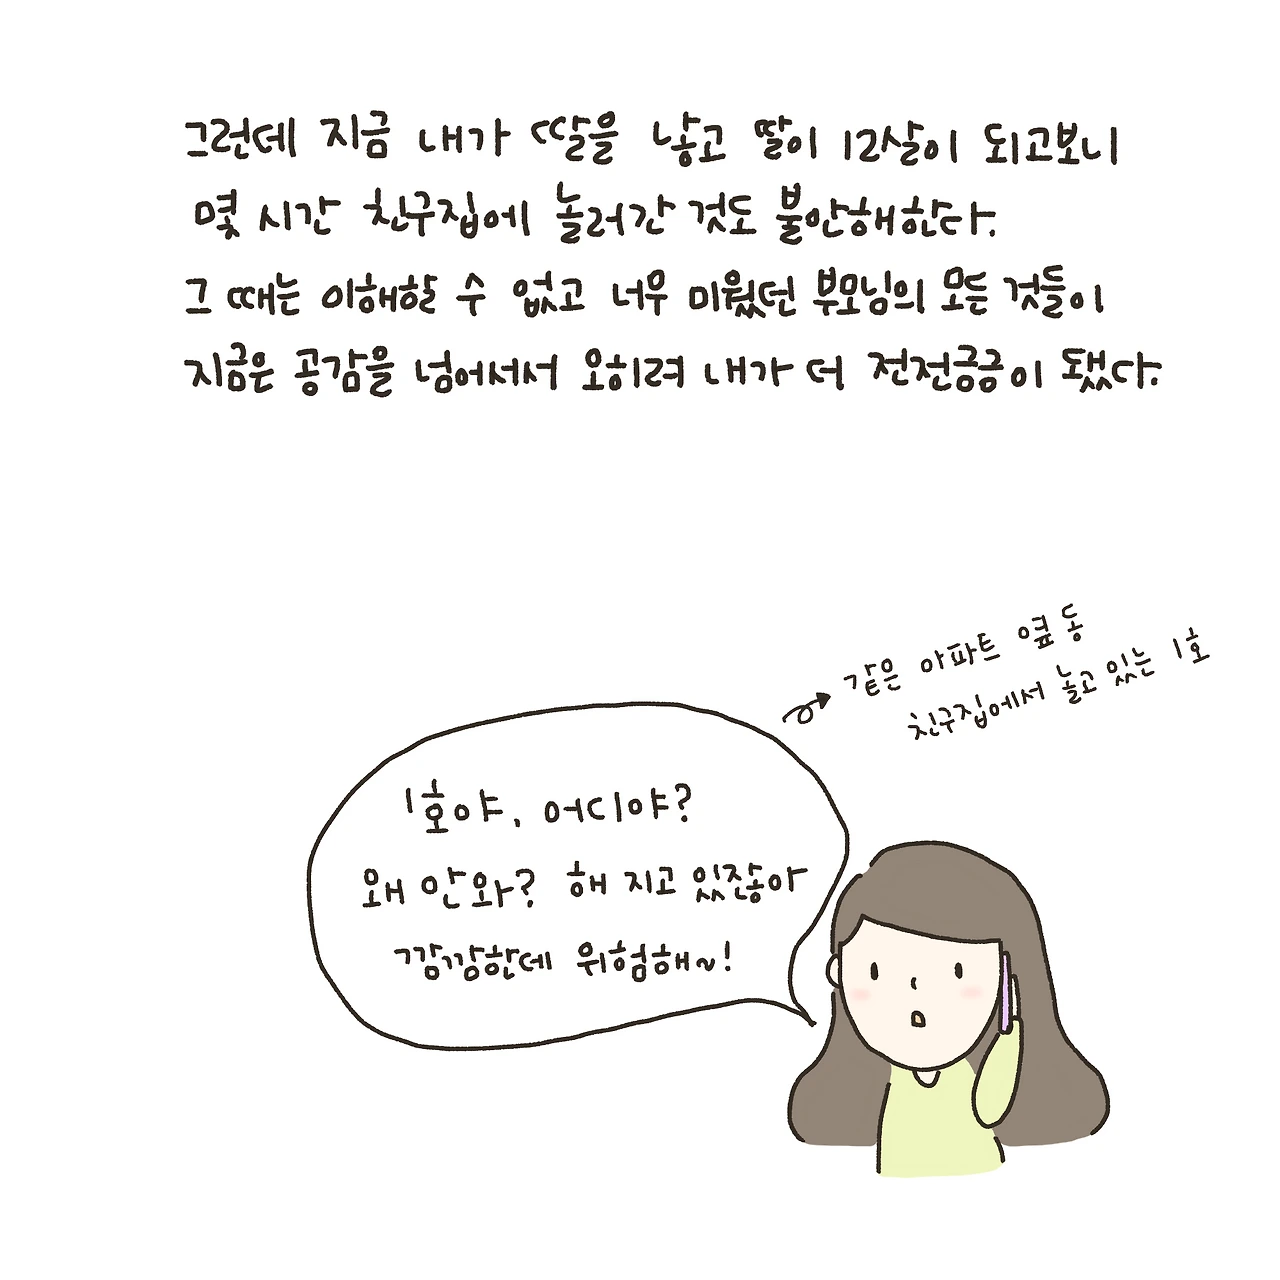 그런데 지금 내가 딸을 낳고 딸이 12살이 되고보니
몇 시간 친구집에 놀러간 것도 불안해한다.
그 때는 이해할 수 없고 너무 미웠던 부모님의 모든 것들이
지금은 공감을 넘어서서 오히려 내가 더 전전긍긍이 됐다.
같은 아파트 옆 동
친구집에서 놀고 있는 1호
1호야, 어디야?
왜 안와? 해 지고 있잖아
깜깜한데 위험해~!